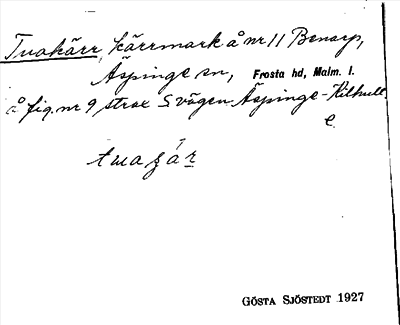 Tvakärr, kärrmark å nr 11 Benarp,
Äspinge sn, Frosta hd, Malm. l.
å fig. nr 9 strax S vägen Äspinge-Kilhult.
e.
GÖSTA SJÖSTEDT 1927